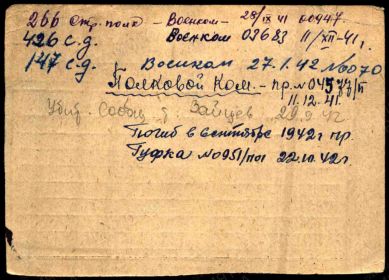 266 стр. полк - Военком - 28/IX 41 00447.
426 с.д. Военком 03683 11/XII-41г.
147 с.д. Военком 27.1.42 №0070
Полковой Ком. - пр. №04577/п
11.12.41.
Зайцев 42
Погиб в сентябре 1942г пр.
Гуфка №0951/пог 22.10.42г.